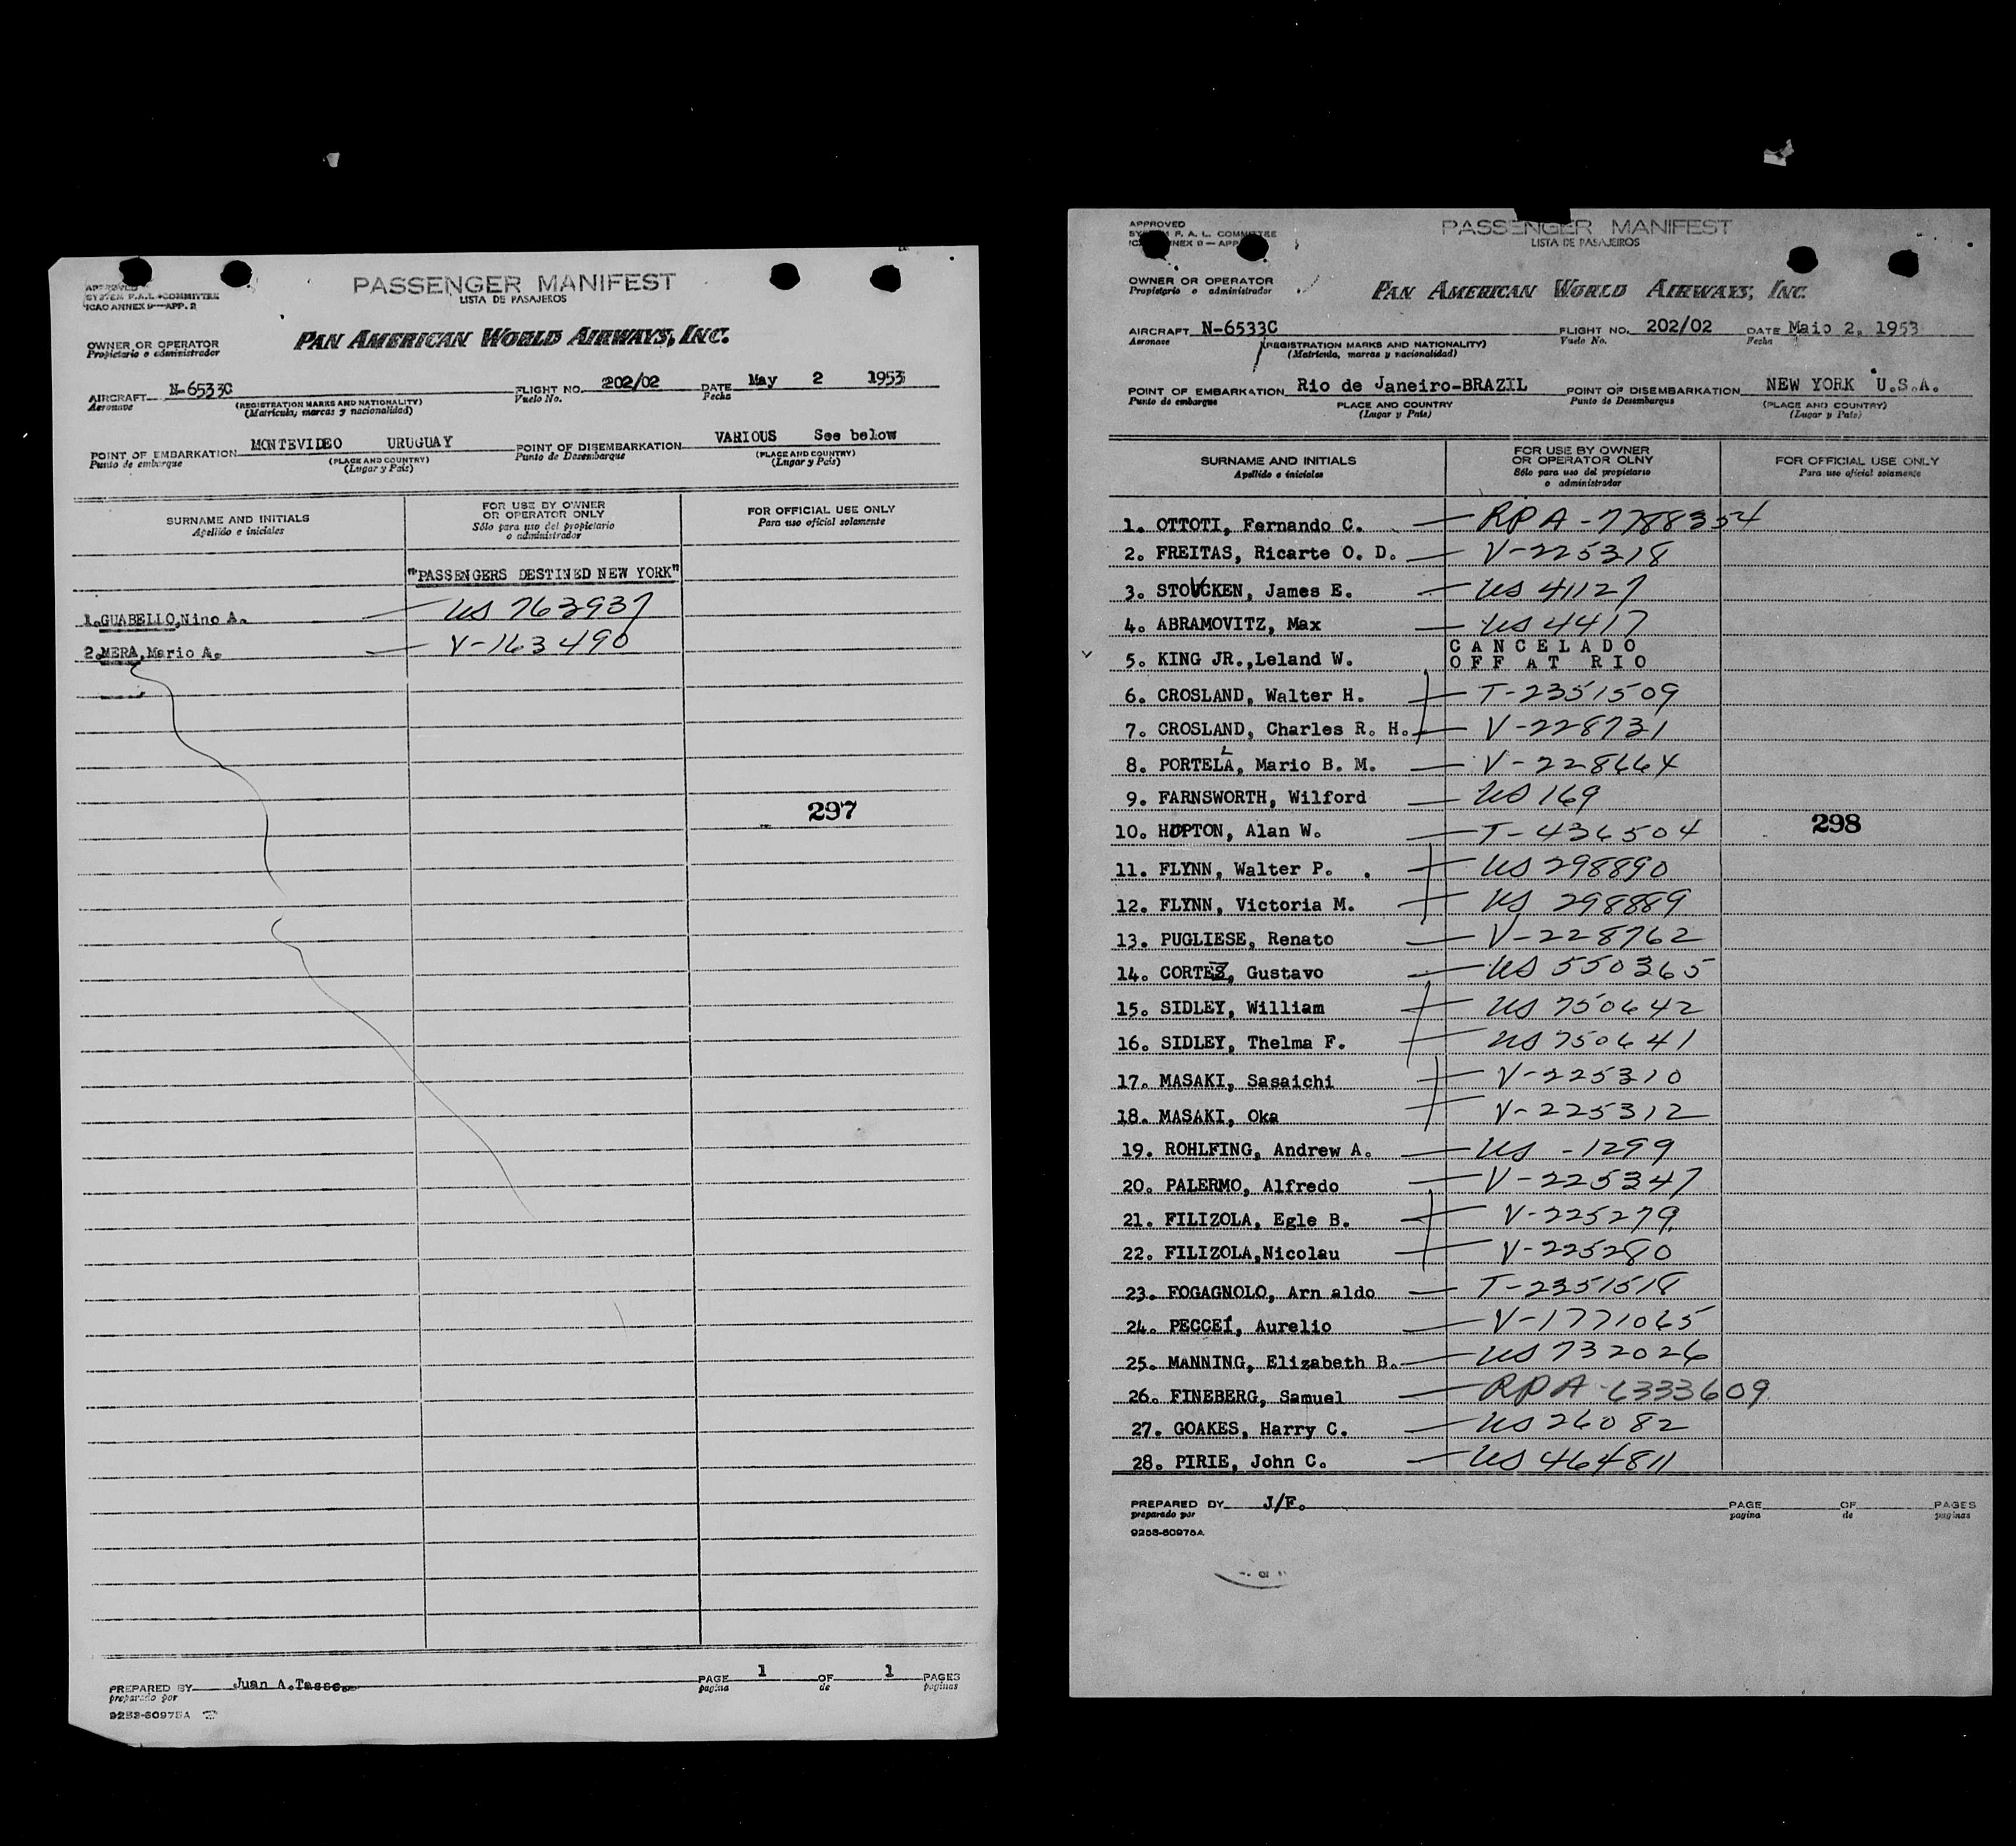 APPROVED
SYSTEM F.A.L. COMMITTEE
ICAO ANNEX 9—APP. 2
PASSENGER MANIFEST
LISTA DE PASAJEROS
OWNER OR OPERATOR
Propietario o administrador
PAN AMERICAN WORLD AIRWAYS, INC.
AIRCRAFT N-6533C FLIGHT NO. 202/02 DATE May 2 1953
Aeronave (REGISTRATION MARKS AND NATIONALITY) Vuelo No. Fecha
(Matrícula, marcas y nacionalidad)
POINT OF EMBARKATION MONTEVIDEO URUGUAY POINT OF DISEMBARKATION VARIOUS See below
Punto de embarque (PLACE AND COUNTRY) Punto de Desembarque (PLACE AND COUNTRY)
(Lugar y País) (Lugar y País)
SURNAME AND INITIALS FOR USE BY OWNER OR OPERATOR ONLY FOR OFFICIAL USE ONLY
Apellido e iniciales Sólo para uso del propietario o administrador Para uso oficial solamente
"PASSENGERS DESTINED NEW YORK"
1.GUABELLO,Nino A. — US 763937
2.MERA,Mario A. — V-163490
297
PREPARED BY Juan A.Tasso PAGE 1 OF 1 PAGES
preparado por pagina de paginas
9253-60975A
APPROVED
SYSTEM F. A. L. COMMITTEE
ICAO ANNEX 9 — APP
PASSENGER MANIFEST
LISTA DE PASAJEIROS
OWNER OR OPERATOR
Propietario o administrador
PAN AMERICAN WORLD AIRWAYS, INC.
AIRCRAFT N-6533C FLIGHT NO. 202/02 DATE Maio 2, 1953
Aeronave (REGISTRATION MARKS AND NATIONALITY) Vuelo No. Fecha
(Matricula, marcas y nacionalidad)
POINT OF EMBARKATION Rio de Janeiro-BRAZIL POINT OF DISEMBARKATION NEW YORK U.S.A.
Punto de embarque PLACE AND COUNTRY Punto de Desembarque (PLACE AND COUNTRY)
(Lugar y Pais) (Lugar y Pais)
SURNAME AND INITIALS FOR USE BY OWNER OR OPERATOR OLNY FOR OFFICIAL USE ONLY
Apellido e iniciales Sólo para uso del propietario o administrador Para uso oficial solamente
1. OTTOTI, Fernando C. — RPA-7788354
2. FREITAS, Ricarte O. D. — V-225318
3. STOVCKEN, James E. — US 41127
4. ABRAMOVITZ, Max — US 4417
5. KING JR.,Leland W. CANCELADO
OFF AT RIO
6. CROSLAND, Walter H. — T-2351509
7. CROSLAND, Charles R. H. — V-228731
L
8. PORTELA, Mario B. M. — V-228664
9. FARNSWORTH, Wilford — US 169
10. HUPTON, Alan W. — T-436504
298
11. FLYNN, Walter P. — US 298890
12. FLYNN, Victoria M. — US 298889
13. PUGLIESE, Renato — V-228762
14. CORTEZ, Gustavo — US 550365
15. SIDLEY, William — US 750642
16. SIDLEY, Thelma F. — US 750641
17. MASAKI, Sasaichi — V-225310
18. MASAKI, Oka — V-225312
19. ROHLFING, Andrew A. — US -1299
20. PALERMO, Alfredo — V-225347
21. FILIZOLA, Egle B. — V-225279
22. FILIZOLA,Nicolau — V-225280
23. FOGAGNOLO, Arn aldo — T-2351518
24. PECCEI, Aurelio — V-1771065
25. MANNING, Elizabeth B. — US 732026
26. FINEBERG, Samuel — RPA-6333609
27. GOAKES, Harry C. — US 26082
28. PIRIE, John C. — US 464811
PREPARED BY J/F. PAGE OF PAGES
preparado por pagina de paginas
9253-60975A